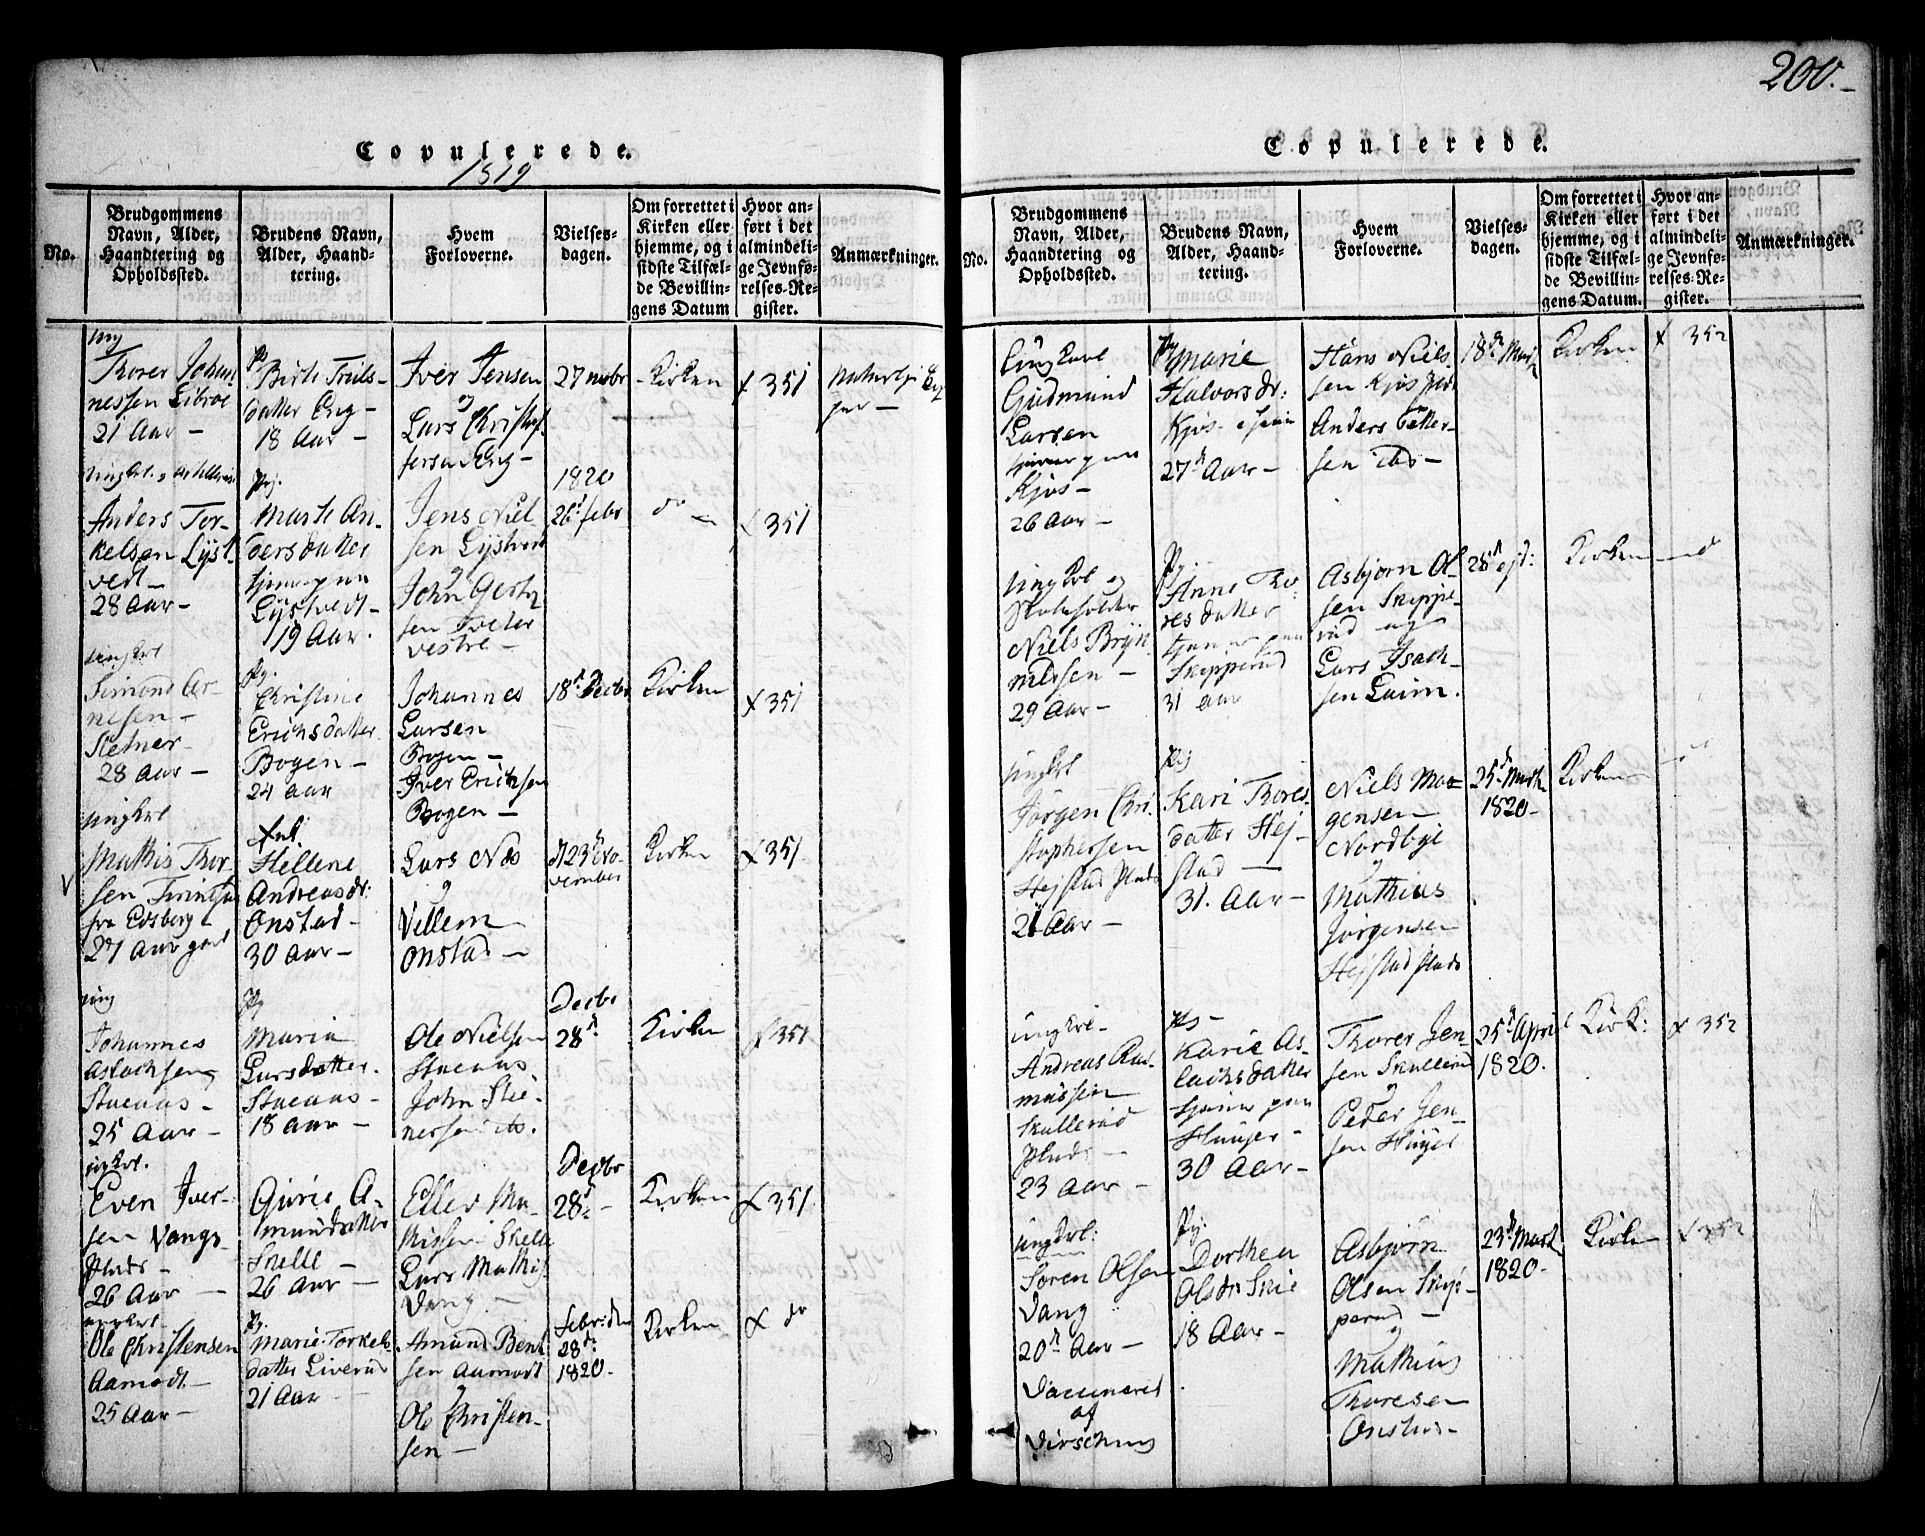 200.
Copulerede.
1819
No.
Brudgommens
Navn, Alder,
Haandtering og
Opholdssted.
Brudens Navn,
Alder, Haand-
tering.
Hvem
Forloverne.
Vielses-
dagen.
Om forrettet i
Kirken eller
hjemme, og i
sidste Tilfæl-
de Bevillin-
gens Datum
Hvor an-
ført i det
almindeli-
ge Jevnfø-
relses-Re-
gister.
Anmærkninger.
ung
Thorer Johan-
nessen
21 Aar -
Pg
Birte Truls-
datter Eng -
18 Aar -
Iver Jensen
Lars Christof-
fersen Eng -
27
Kirken
x 351
Anders Tor-
kelsen Lyst-
vedt -
28 Aar -
Pg.
Marte An-
dersdatter
tjener paa
Lystvedt -
19 Aar.
Jens Niel-
sen Lystvedt
John
vestre -
1820
26d febr
do -
x 351
ungkrl
Simon Ar-
nesen -
28 Aar -
Pg.
Christine
Erichsdatter
Bogen -
24 aar
Johannes
Larsen
Bogen -
Iver Erichsen
Bogen -
18d Decbr
Kirken
x 351
ungkrl
V
Mathis Thor-
sen
fra Edsberg
27 Aar
Hellene
Andreasdr:
Onstad -
30 Aar -
Lars Næs
Villem
Onstad -
d 23d No-
vember
Kirken
x 351
ung
Johannes
Aslachsen
25 Aar -
Pg
Maria
Larsdatter.
18 aar -
Ole Nielsen
John
do.
Decbr
28d
Kirken
x 351
ungkrl.
Even Iver-
sen Vangs-
Plads -
26 Aar -
Gurie A-
mundsdatter
Skelle -
26 aar -
Eller Ma-
thissen Skelle
Lars Mathis-
Vang -
Decbr
28d -
Kirken
x 351
ungkrl.
Ole Christensen
Aamodt -
25 Aar -
Pg.
Marie Torkels-
datter Liverud
21 Aar -
Amund Bent-
sen Aamodt
Ole Christen-
sen -
Febr: den
28d
1820.
Kirken
x do
Copulerede.
No.
Brudgommens
Navn, Alder,
Haandtering og
Opholdssted.
Brudens Navn,
Alder, Haand-
tering.
Hvem
Forloverne.
Vielses-
dagen.
Om forrettet i
Kirken eller
hjemme, og i
sidste Tilfæl-
de Bevillin-
gens Datum.
Hvor an-
ført i det
almindeli-
ge Jevnfø-
relses-Re-
gister.
Anmærkninger.
Ungkarl
Gudmund
Larsen
tjener paa
Kjos -
26 Aar -
Pg Marie
Halvorsdr:
Kjos
27 Aar -
Hans Niels-
sen Kjos
Anders Petter-
sen do -
18d
Kirken
x 352
ungkrl og
Skoleholder
Niels Bryn-
nildsen -
29 Aar -
Pg.
Anne Tho-
resdatter
tjener paa
Skipperud
31 aar
Asbjørn Ol-
sen Skippe-
rud og
Lars Isach-
sen
28d ejd:
Kirken
ungkrl
Jørgen Chri-
stophersen
Hejstad Plads
21 Aar -
Pig
Kari Thores-
datter Hej-
stad -
31. Aar -
Niels Mo-
gensen
Nordbye
Mathias
Jørgensen
Hejstad Plads
25d Marts
1820.
Kirken
ungkrl.
Andreas Ras-
mussen
Skullerud
Plads -
23 Aar -
Pig -
Karie As-
lachsdatter
tjener paa
Hauger -
30 Aar -
Thorer Jen-
sen Skullerud
Peder Jen-
sen
25d April
1820.
Kirk:
x 352
ungkrl:
Søren Olsen
Vang
20d Aar -
Vaccineret
af
Pg.
Dorthea
Olsdr Skie
18 Aar -
Asbjørn
Olsen Skip-
perud -
Mathias
Thoresen
Onstad -
23d Marts
1820 -
Kirken
x 352